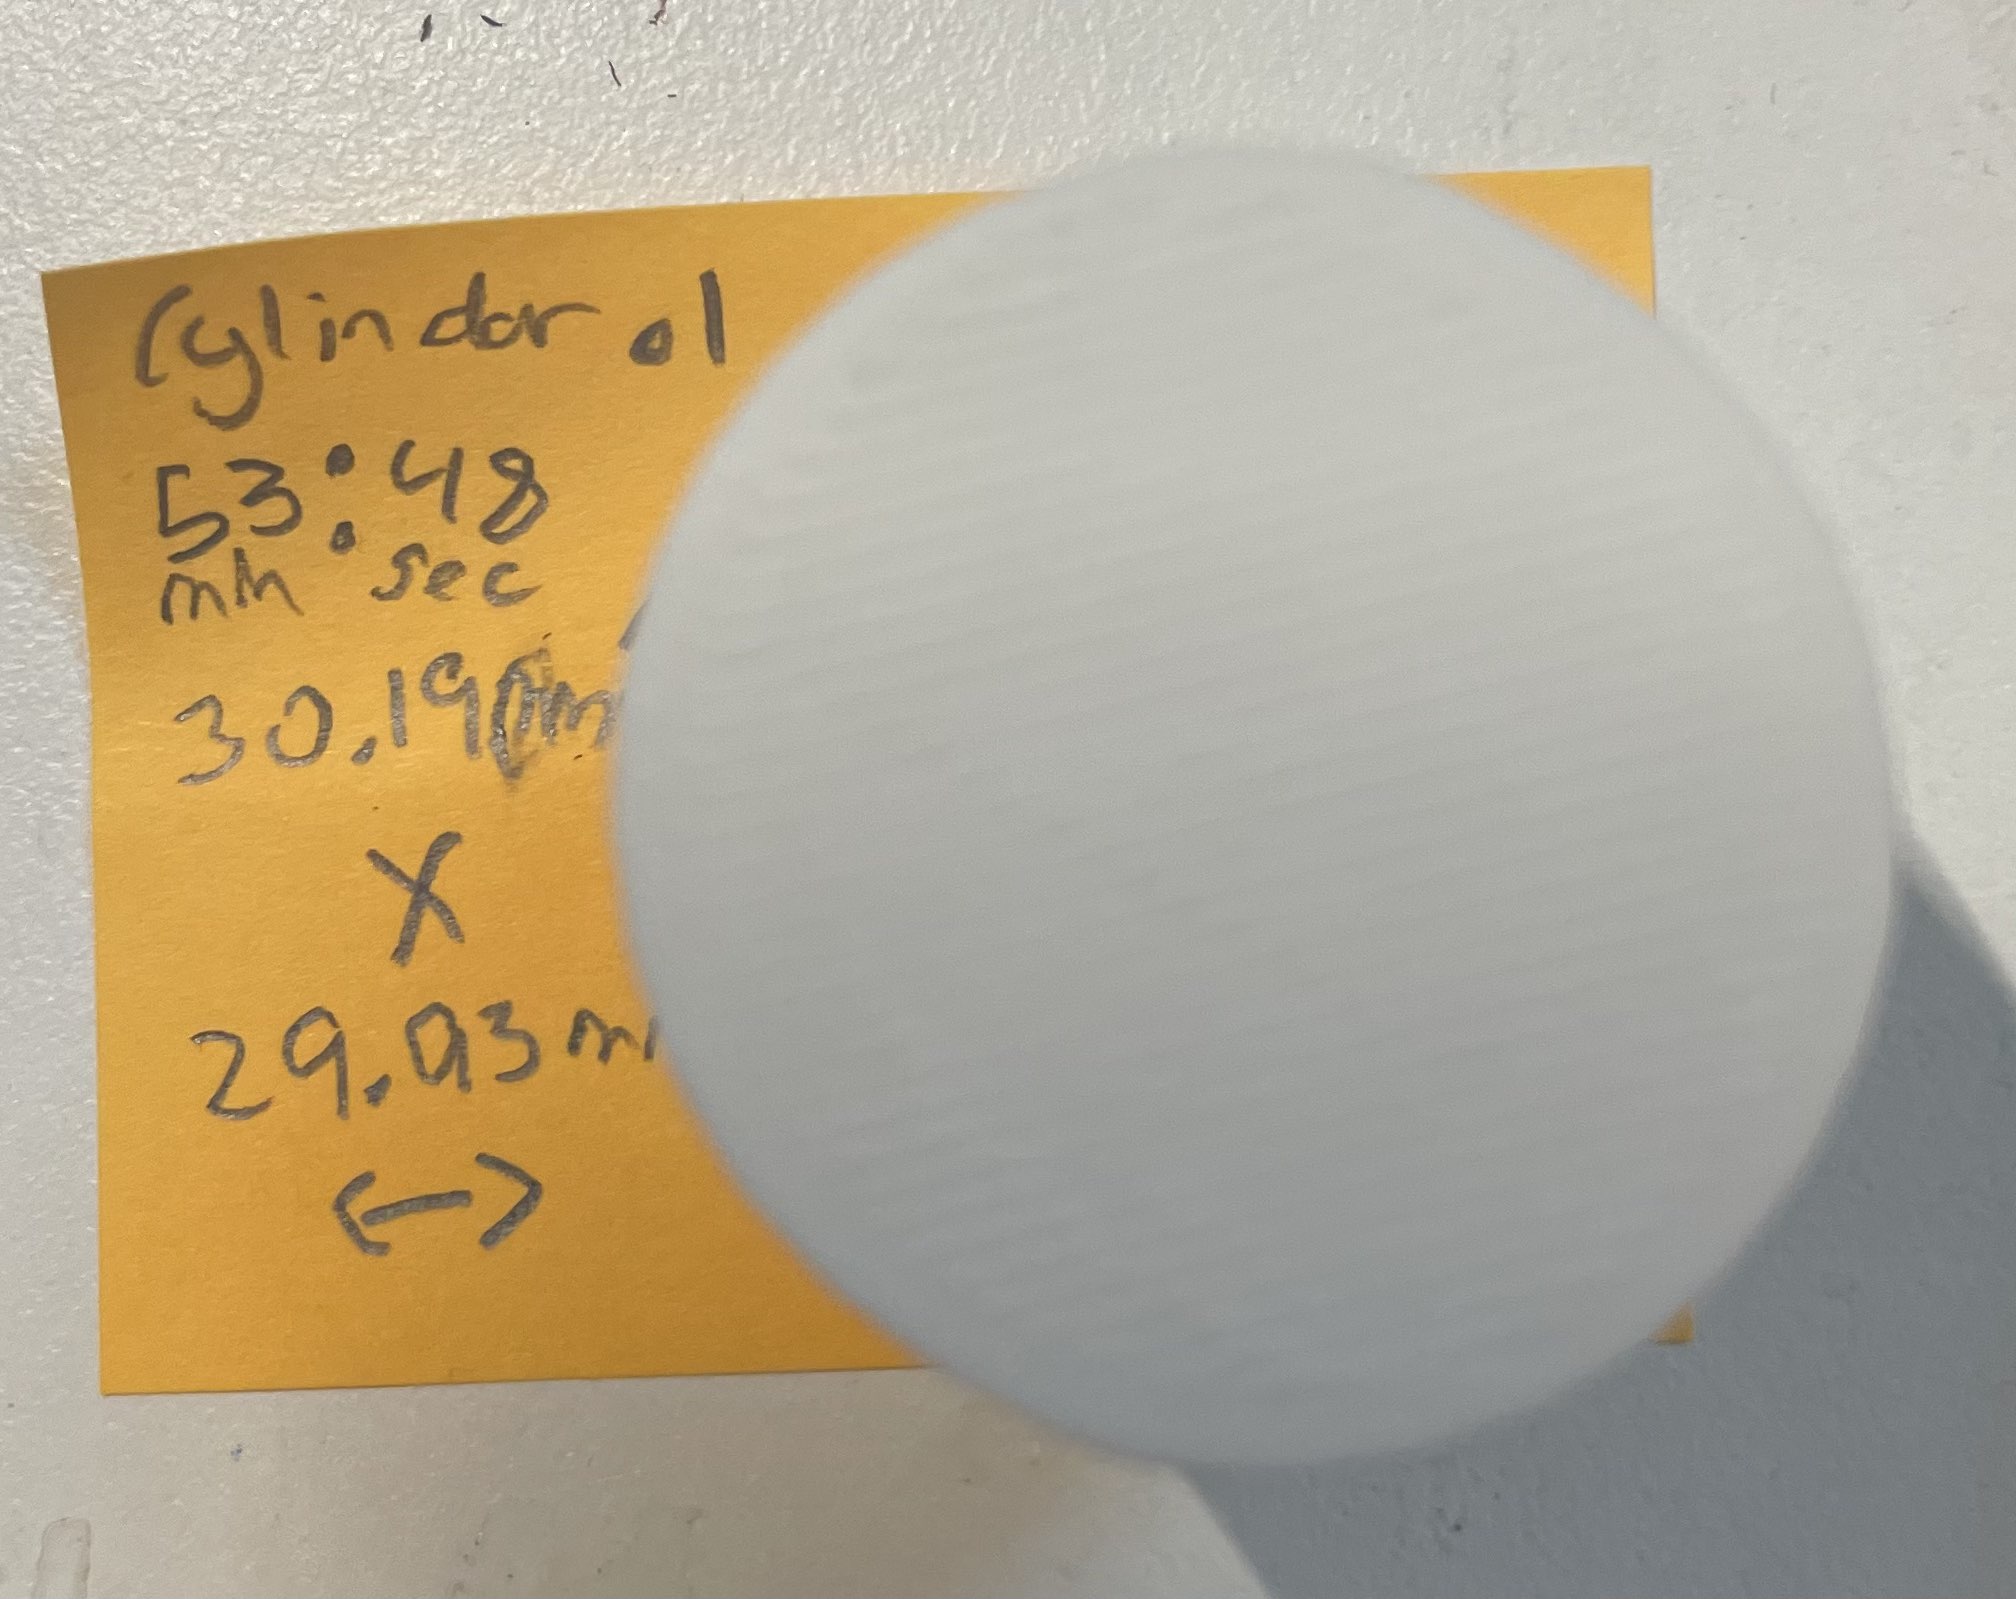 Cylindar .1
53:48
min sec
30.19
X
29.93 m
<-->